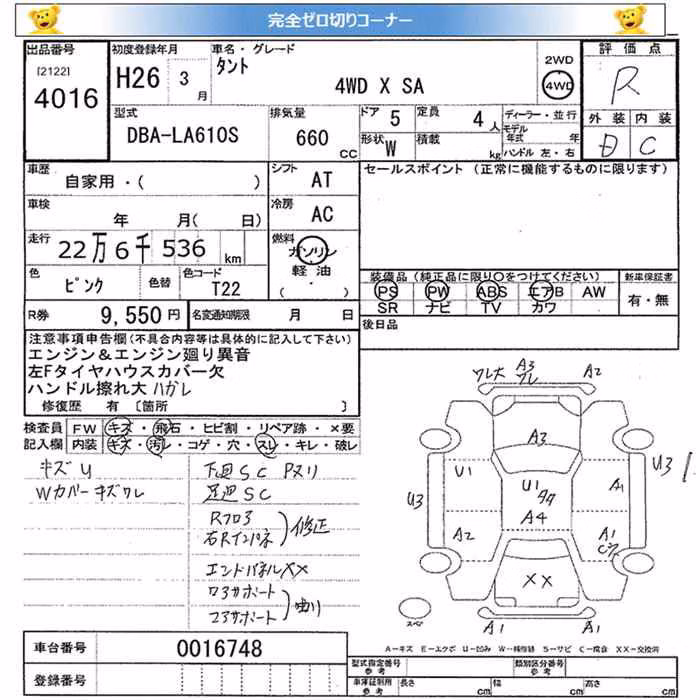 完全ゼロ切りコーナー
出品番号
[2122]
4016
初度登録年月
H26 3月
車名・グレード
タント
4WD X SA
2WD
4WD
評価点
R
外装 内装
D C
型式
DBA-LA610S
排気量
660 CC
ドア 5
定員 4人
形状 W
積載 kg
ディーラー・並行
モデル年式 年
ハンドル 左・右
車歴
自家用・( )
シフト AT
車検
年 月( 日)
冷房 AC
走行
22万6千536 km
燃料
ガソリン
軽油・
( )
色
ピンク
色替
色コード
T22
R券 9,550円
名変通知期限 月 日
セールスポイント (正常に機能するものに限ります)
装備品 (純正品に限り○をつけてください)
PS PW ABS エアB AW
SR ナビ TV カワ
新車保証書
有・無
後日品
注意事項申告欄(不具合内容等は具体的に記入して下さい)
エンジン&エンジン廻り異音
左Fタイヤハウスカバー欠
ハンドル擦れ大 ハガレ
修復歴 有 [箇所 ]
検査員 FW キズ・飛石・ヒビ割・リペア跡・×要
記入欄 内装 キズ・汚レ・コゲ・穴・スレ・キレ・破レ
キズ U
Wカバー キズワレ
下廻SC Pヌリ
足廻SC
Rフロア
右Rインパネ
修正
エンドパネルXX
ロアサポート
コアサポート
曲り
ワレ大
A3
ワレ
A2
A3
U1
U1
A4
A1
U3
U3
A2
A1
XX
スペア
A1
A1
A-キズ E-エクボ U-凹み W-補修跡 S-サビ C-腐食 XX-交換済
車台番号 0016748
登録番号
型式指定番号
参考
類別区分番号
参考
車庫証明用
参考
長さ cm 幅 cm 高さ cm